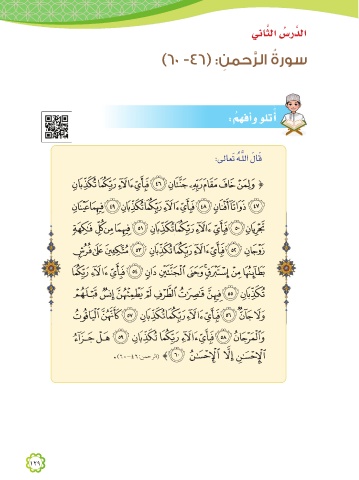 الدَّرسُ الثَّاني
سورةُ الرَّحمنِ: (٤٦- ٦٠)
أتلو وأفهمُ:
قالَ اللَّهُ تعالى:
﴿ وَلِمَنْ خَافَ مَقَامَ رَبِّهِۦ جَنَّتَانِ ٤٦ فَبِأَيِّ ءَالَآءِ رَبِّكُمَا تُكَذِّبَانِ
٤٧ ذَوَاتَآ أَفْنَانٍ ٤٨ فَبِأَيِّ ءَالَآءِ رَبِّكُمَا تُكَذِّبَانِ ٤٩ فِيهِمَا عَيْنَانِ
تَجْرِيَانِ ٥٠ فَبِأَيِّ ءَالَآءِ رَبِّكُمَا تُكَذِّبَانِ ٥١ فِيهِمَا مِن كُلِّ فَٰكِهَةٍ
زَوْجَانِ ٥٢ فَبِأَيِّ ءَالَآءِ رَبِّكُمَا تُكَذِّبَانِ ٥٣ مُتَّكِـِٔينَ عَلَىٰ فُرُشٍۭ
بَطَآئِنُهَا مِنْ إِسْتَبْرَقٍ وَجَنَى ٱلْجَنَّتَيْنِ دَانٍ ٥٤ فَبِأَيِّ ءَالَآءِ رَبِّكُمَا
تُكَذِّبَانِ ٥٥ فِيهِنَّ قَٰصِرَٰتُ ٱلطَّرْفِ لَمْ يَطْمِثْهُنَّ إِنسٌ قَبْلَهُمْ
وَلَا جَآنٌّ ٥٦ فَبِأَيِّ ءَالَآءِ رَبِّكُمَا تُكَذِّبَانِ ٥٧ كَأَنَّهُنَّ ٱلْيَاقُوتُ
وَٱلْمَرْجَانُ ٥٨ فَبِأَيِّ ءَالَآءِ رَبِّكُمَا تُكَذِّبَانِ ٥٩ هَلْ جَزَآءُ
ٱلْإِحْسَٰنِ إِلَّا ٱلْإِحْسَٰنُ ٦٠ ﴾ (الرحمن: ٤٦-٦٠).
١٢٩